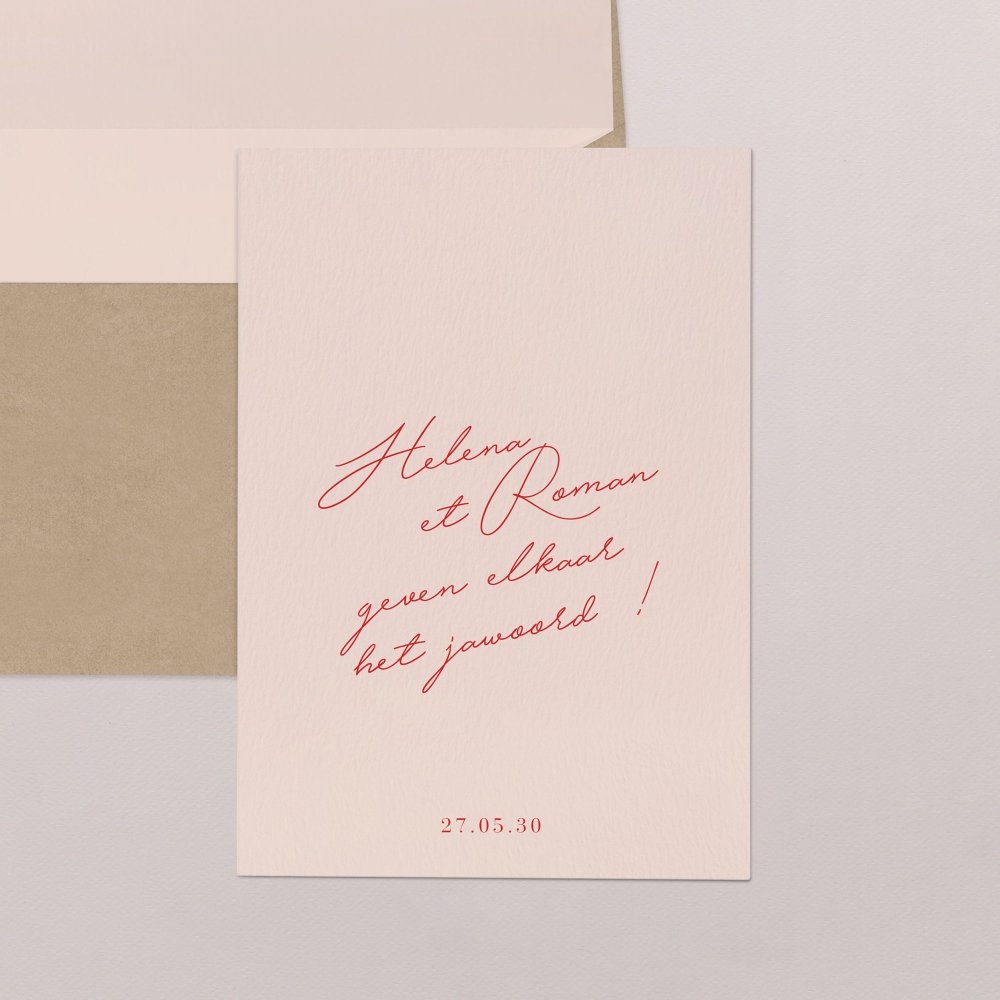 Helena
et Roman
geven elkaar
het jawoord !
27.05.30